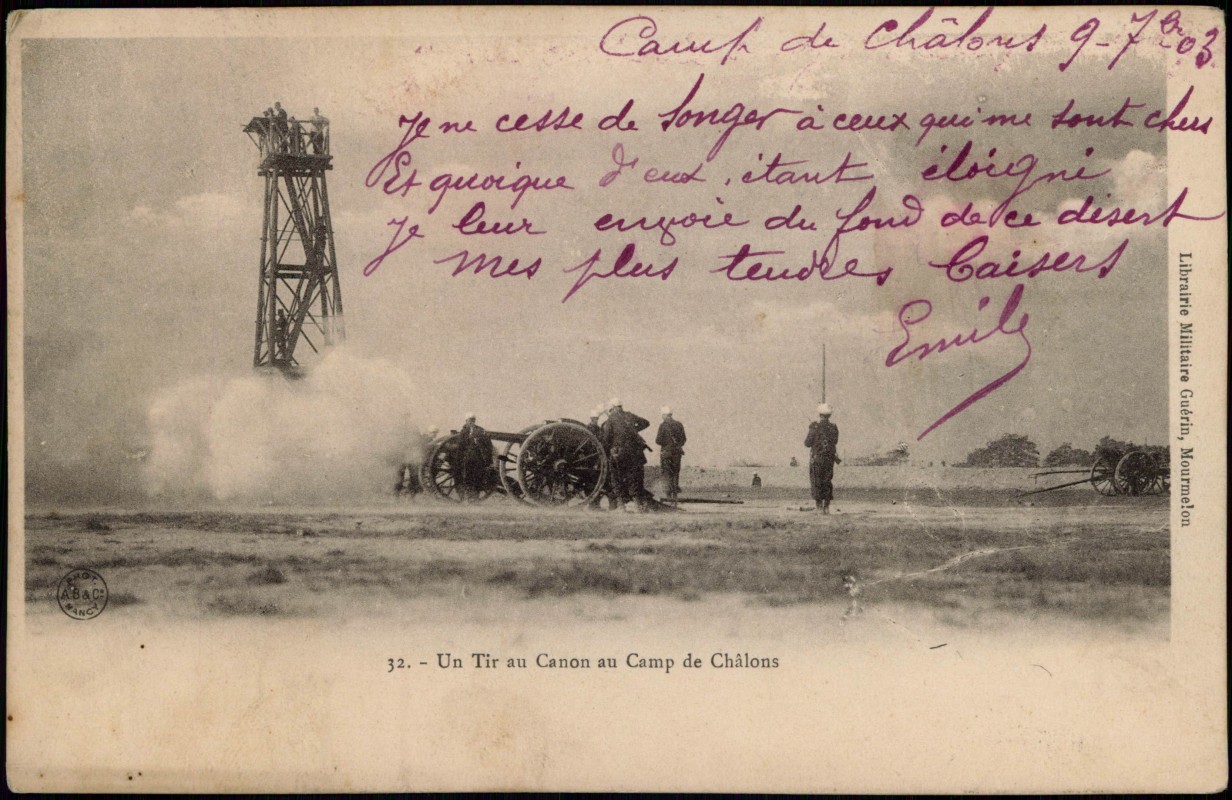 Camp de Châlons 9-7bre 03
Je ne cesse de songer à ceux qui me sont chers
Et quoique d'eux, étant éloigné
Je leur envoie du fond de ce désert
Mes plus tendres baisers
Emile
Librairie Militaire Guérin, Mourmelon
PHOT
A.B & Cie
NANCY
32. - Un Tir au Canon au Camp de Châlons